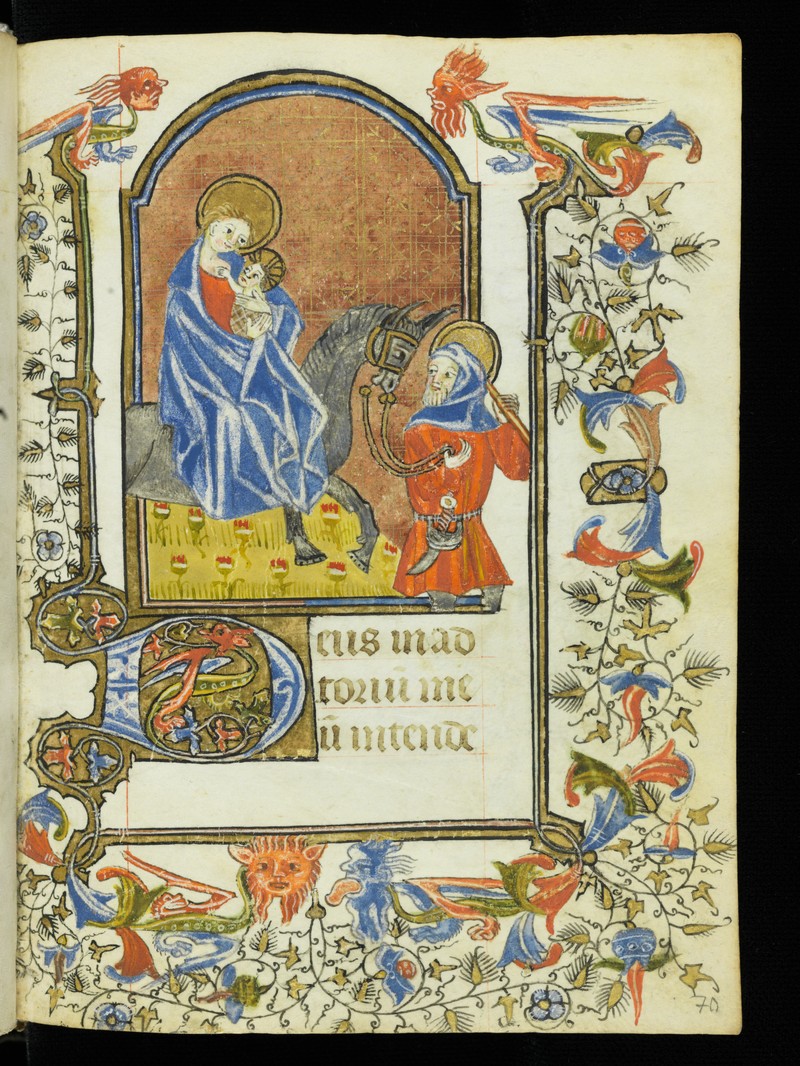 Deus in ad
toriū me
ū intende
70